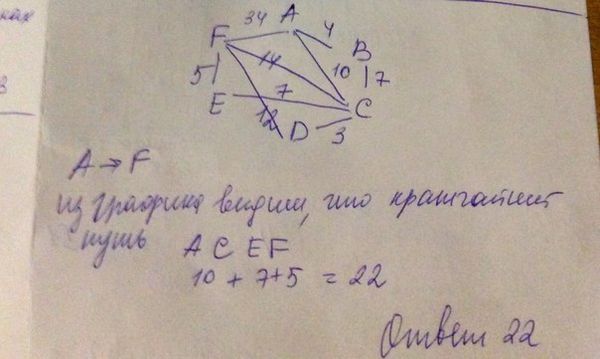 34 A 4
F B
14 10
5 7 7
E C
12 D 3
A → F
из графика видим, что кратчайший
путь A C E F
10 + 7 + 5 = 22
Ответ 22